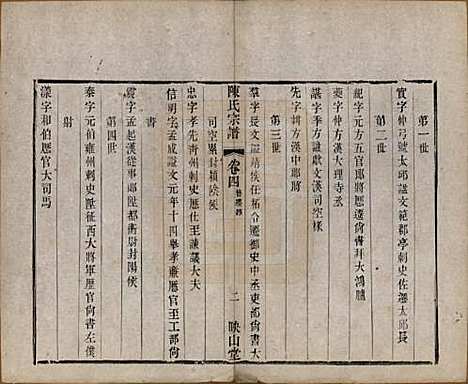 第一世
寔字仲弓號太邱諡文範郡亭刺史佐遷太邱長
第二世
紀字元方五官郎將歷遷尚書拜大鴻臚
夔字仲方漢大理寺丞
諶字季方諡獻文漢司空掾
先字詡方漢中郎將
第三世
羣字長文諡靖侯任柘令遷御史中丞吏部尚書大
司空累封潁陰侯
忠字孝先青州刺史歷仕至諫議大夫
信明字孟威諡文元年十四舉孝廉歷官至工部尚
書
寔字孟起漢從事郎陞都衛尉封陽侯
第四世
泰字元伯雍州刺史陞征西大將軍歷官尚書左僕
射
漾字和伯歷官大司馬
陳氏宗譜
卷四
二
映山堂